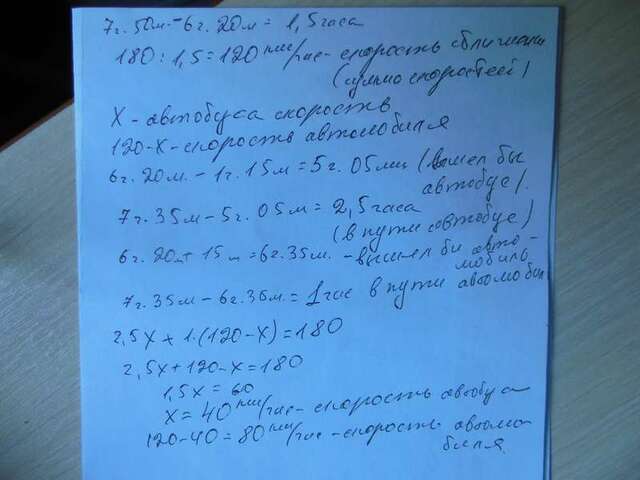 7ч. 50м - 6ч. 20м = 1,5 часа
180 : 1,5 = 120 км/час - скорость сближения
(сумма скоростей)
X - автобуса скорость
120-X - скорость автомобиля
6ч. 20м. - 1ч. 15м = 5ч. 05мин (вышел бы
автобус).
7ч. 35м - 5ч. 05м = 2,5 часа
(в пути автобус)
6ч. 20м + 15м = 6ч. 35м. - вышел бы авто-
мобиль
7ч. 35м - 6ч. 35м. = 1 час в пути автомобиль
2,5X + 1·(120-X) = 180
2,5X + 120 - X = 180
1,5X = 60
X = 40 км/час - скорость автобуса
120-40 = 80 км/час - скорость автомо
биля